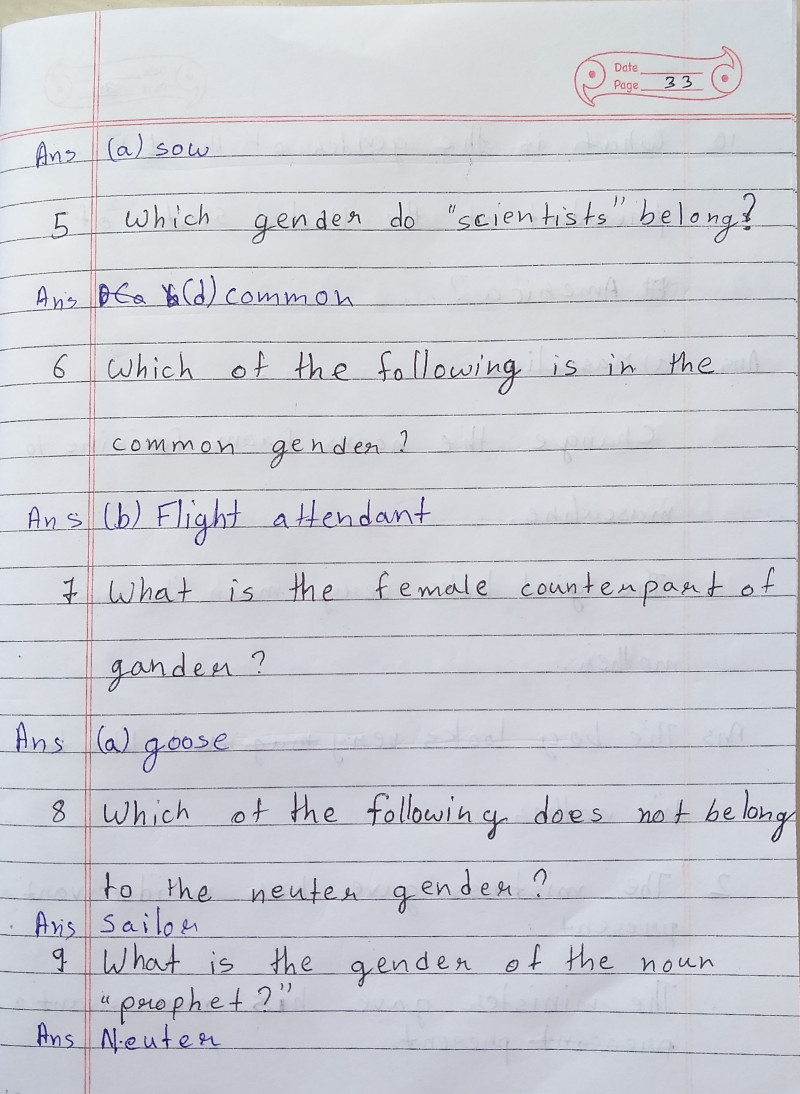 Date
Page 33
Ans (a) sow
5 Which gender do "scientists" belong?
Ans (d) common
6 Which of the following is in the
common gender?
Ans (b) Flight attendant
7 What is the female counterpart of
gander?
Ans (a) goose
8 Which of the following does not belong
to the neuter gender?
Ans Sailor
9 What is the gender of the noun
"prophet?"
Ans Neuter